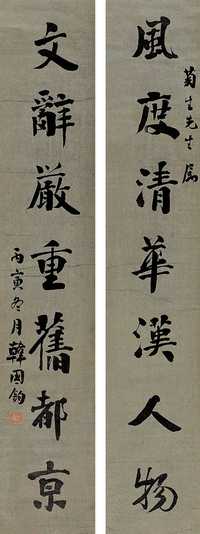 菊生先生属
風度清華漢人物
文辭嚴重舊都京
丙寅冬月韓國鈞